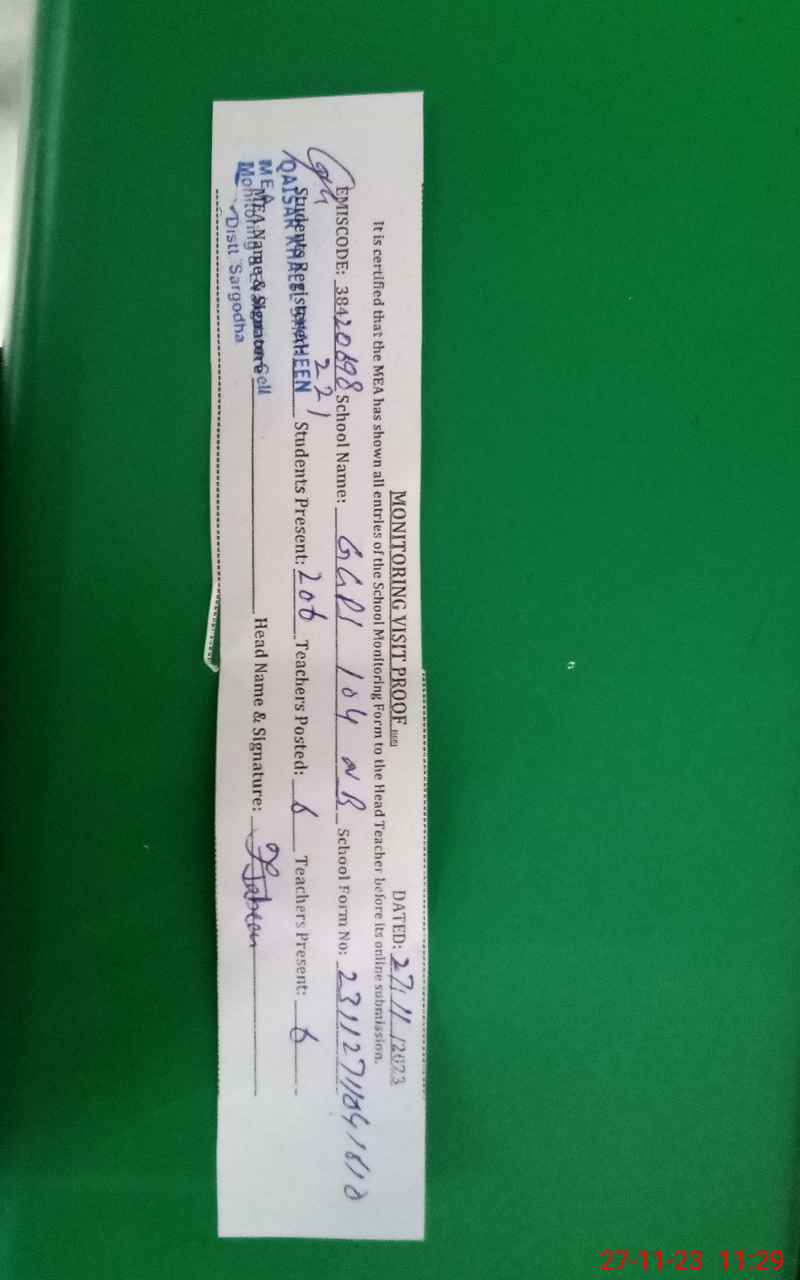 MONITORING VISIT PROOF DATED: 27/11/2023
It is certified that the MEA has shown all entries of the School Monitoring Form to the Head Teacher before its online submission.
EMISCODE: 38420698 School Name: GGPS 104 NB School Form No:
Students Registered: 221 Students Present: 206 Teachers Posted: 6 Teachers Present: 6
MEA Name & Signature Head Name & Signature:
QAISAR KHALEEL SHAHEEN
MEA
Monitoring & Cell
Distt Sargodha
27-11-23 11:29